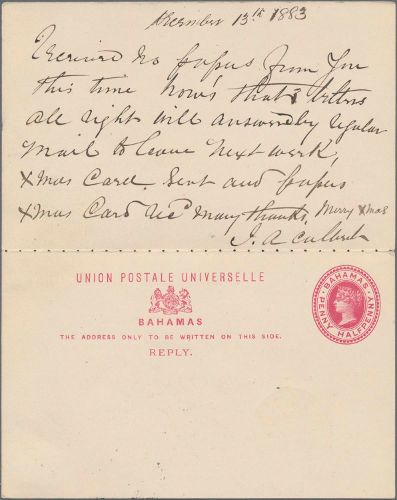 December 13th 1883
I received no papers from you
this time how's that & letters
all right will answer by regular
mail to leave next week,
Xmas Card. Sent and papers
Xmas Card Recd many thanks. Merry Xmas
J. A
UNION POSTALE UNIVERSELLE
BAHAMAS
THE ADDRESS ONLY TO BE WRITTEN ON THIS SIDE.
REPLY.
BAHAMAS
PENNY HALFPENNY